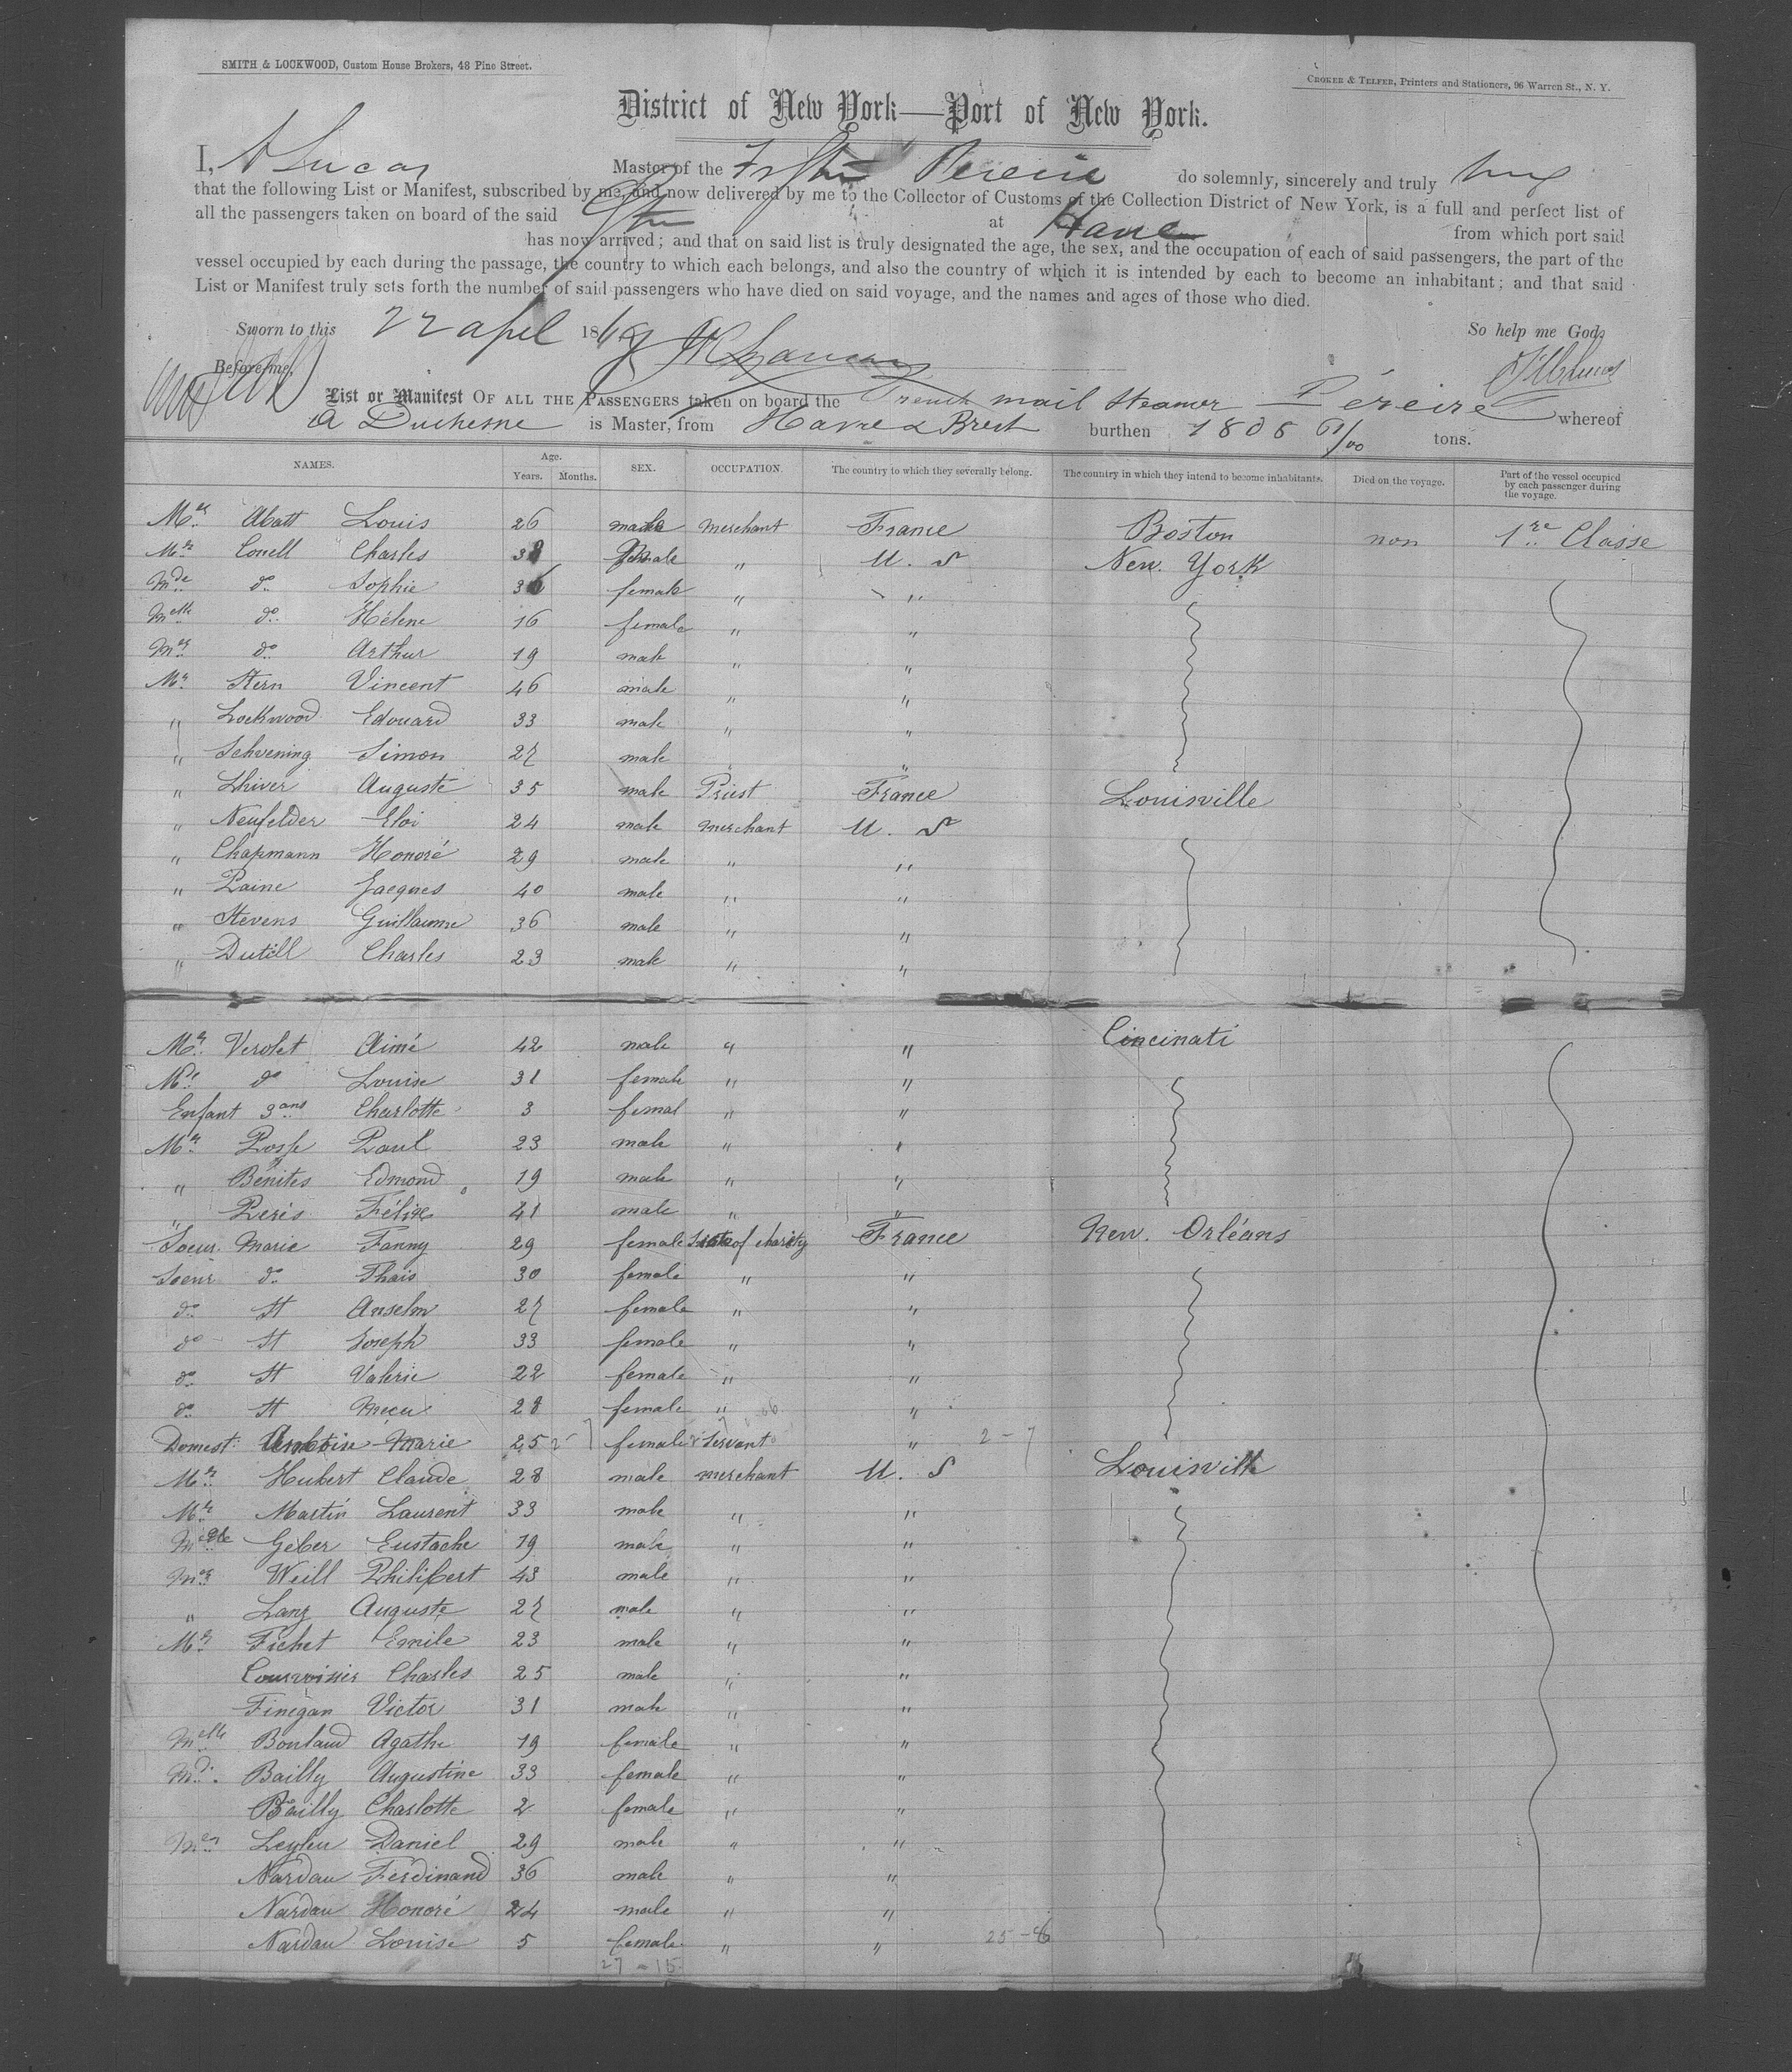 SMITH & LOCKWOOD, Custom House Brokers, 48 Pine Street.
CROKER & TELFER, Printers and Stationers, 96 Warren St., N. Y.
District of New York—Port of New York.
I, Lucas Master of the Pereire do solemnly, sincerely and truly
that the following List or Manifest, subscribed by me, and now delivered by me to the Collector of Customs of the Collection District of New York, is a full and perfect list of
all the passengers taken on board of the said at Havre from which port said
has now arrived; and that on said list is truly designated the age, the sex, and the occupation of each of said passengers, the part of the
vessel occupied by each during the passage, the country to which each belongs, and also the country of which it is intended by each to become an inhabitant; and that said
List or Manifest truly sets forth the number of said passengers who have died on said voyage, and the names and ages of those who died.
Sworn to this 22 april 1869 So help me God.
Before me,
List or Manifest OF ALL THE PASSENGERS taken on board the French mail Steamer Péreire whereof
A Duchesne is Master, from Havre & Brest burthen tons.
NAMES. Age. Years. Months. SEX. OCCUPATION. The country to which they severally belong. The country in which they intend to become inhabitants. Died on the voyage. Part of the vessel occupied by each passenger during the voyage.
Mr. Abatt Louis 26 male merchant France Boston non 1re Classe
Mr. Conell Charles male " U. S New. York
Mde do Sophie 36 female " "
Melle do Hélène 16 female " "
Mr. do Arthur 19 male " "
Mr. Stern Vincent 46 male " "
" Lockwood Edouard 33 male " "
" Schvening Simon 27 male " "
" Lhiver Auguste 35 male Priest France Louisville
" Neufelder Eloi 24 male merchant U. S
" Chapmann Honoré 29 male " "
" Paine Jacques 40 male " "
" Stevens Guillaume 36 male " "
" Dutill Charles 23 male " "
Mr. Verolet Aimé 42 male " " Cincinati
Me do Louise 31 female " "
Enfant 3 ans Charlotte 3 femal " "
Mr. Paul 23 male " "
" Bénites Edmond 19 male " "
" Perés Félix 41 male " "
Soeur Marie Fanny 29 female of charity France New. Orléans
Soeur do Thais 30 female " "
do St Anselm 27 female " "
do St Joseph 33 female " "
do St Valerie 22 female " "
do St 28 female " "
Domest. Marie 25 female servant " 2 - 7
Mr. Hubert Claude 28 male merchant U. S Louisville
Mr. Martin Laurent 33 male " "
Geber Eustache 19 male " "
Mr. Weill Philibert 43 male " "
" Lanz Auguste 27 male " "
Mr. Fichet Emile 23 male " "
Courvoisier Charles 25 male " "
Finegan Victor 31 male " "
Melle Bonlaud Agathe 19 female " "
Md. Bailly Augustine 33 female " "
Bailly Charlotte 2 female " "
Mr. Leyleu Daniel 29 male " "
Nardau Ferdinand 36 male " "
Nardau Honoré 24 male " "
Nardau Louise 5 female " "
27 - 15